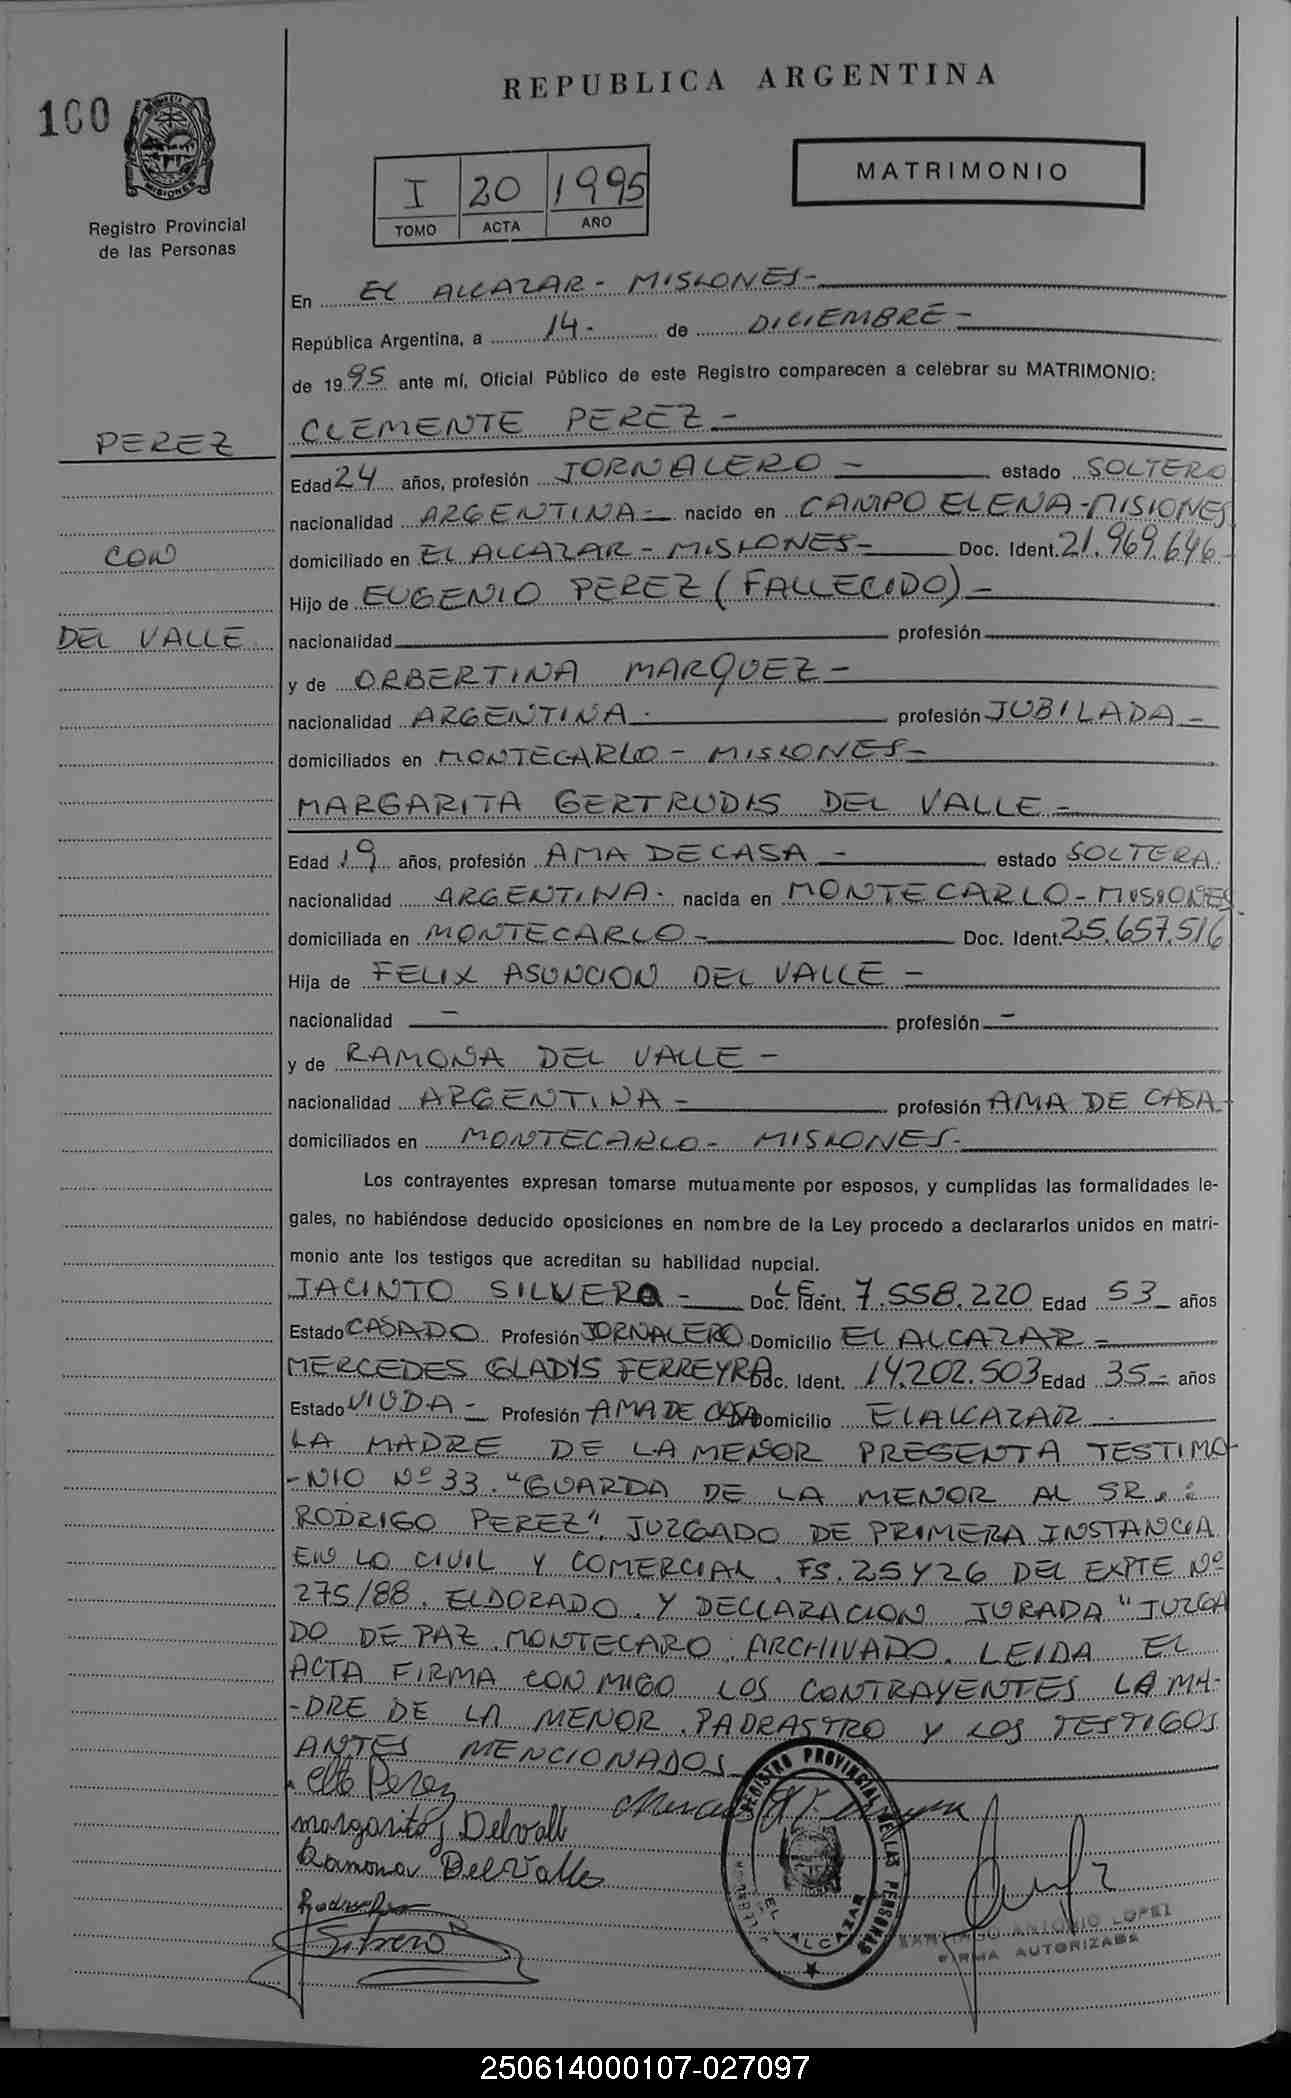 REPUBLICA ARGENTINA
100
MISIONES
Registro Provincial
de las Personas
I 20 1995
TOMO ACTA AÑO
MATRIMONIO
En EL ALCAZAR - MISIONES -
República Argentina, a 14 - de DICIEMBRE -
de 1995 ante mí, Oficial Público de este Registro comparecen a celebrar su MATRIMONIO:
PEREZ
CON
DEL VALLE
CLEMENTE PEREZ -
Edad 24 años, profesión JORNALERO - estado SOLTERO
nacionalidad ARGENTINA - nacido en CAMPO ELENA - MISIONES
domiciliado en EL ALCAZAR - MISIONES - Doc. Ident. 21.969.646 -
Hijo de EUGENIO PEREZ (FALLECIDO) -
nacionalidad profesión
y de ORBERTINA MARQUEZ -
nacionalidad ARGENTINA - profesión JUBILADA -
domiciliados en MONTECARLO - MISIONES -
MARGARITA GERTRUDIS DEL VALLE -
Edad 19 años, profesión AMA DE CASA - estado SOLTERA
nacionalidad ARGENTINA - nacida en MONTECARLO - MISIONES
domiciliada en MONTECARLO - Doc. Ident. 25.657.516
Hija de FELIX ASUNCION DEL VALLE -
nacionalidad - profesión -
y de RAMONA DEL VALLE -
nacionalidad ARGENTINA - profesión AMA DE CASA -
domiciliados en MONTECARLO - MISIONES -
Los contrayentes expresan tomarse mutuamente por esposos, y cumplidas las formalidades le-
gales, no habiéndose deducido oposiciones en nombre de la Ley procedo a declararlos unidos en matri-
monio ante los testigos que acreditan su habilidad nupcial.
JACINTO SILVERO - Doc. Ident. L.E. 7.558.220 Edad 53 años
Estado CASADO Profesión JORNALERO Domicilio EL ALCAZAR -
MERCEDES GLADYS FERREYRA Doc. Ident. 14.202.503 Edad 35 - años
Estado VIUDA - Profesión AMA DE CASA Domicilio EL ALCAZAR -
LA MADRE DE LA MENOR PRESENTA TESTIMO-
-NIO Nº 33. "GUARDA DE LA MENOR AL SR. :
RODRIGO PEREZ", JUZGADO DE PRIMERA INSTANCIA
EN LO CIVIL Y COMERCIAL. FS. 25 Y 26 DEL EXPTE Nº
275/88. ELDORADO. Y DECLARACION JURADA "JUZGA
DO DE PAZ. MONTECARO. ARCHIVADO. LEIDA EL
ACTA FIRMA CON MIGO LOS CONTRAYENTES LA MA-
-DRE DE LA MENOR, PADRASTRO Y LOS TESTIGOS
ANTES MENCIONADOS
Perez
margarita g Delvall
Ramona Del Valle
Silvero
REGISTRO PROVINCIAL DE LAS PERSONAS
EL ALCAZAR
SANTIAGO ANTONIO LOPEZ
FIRMA AUTORIZADA
250614000107-027097